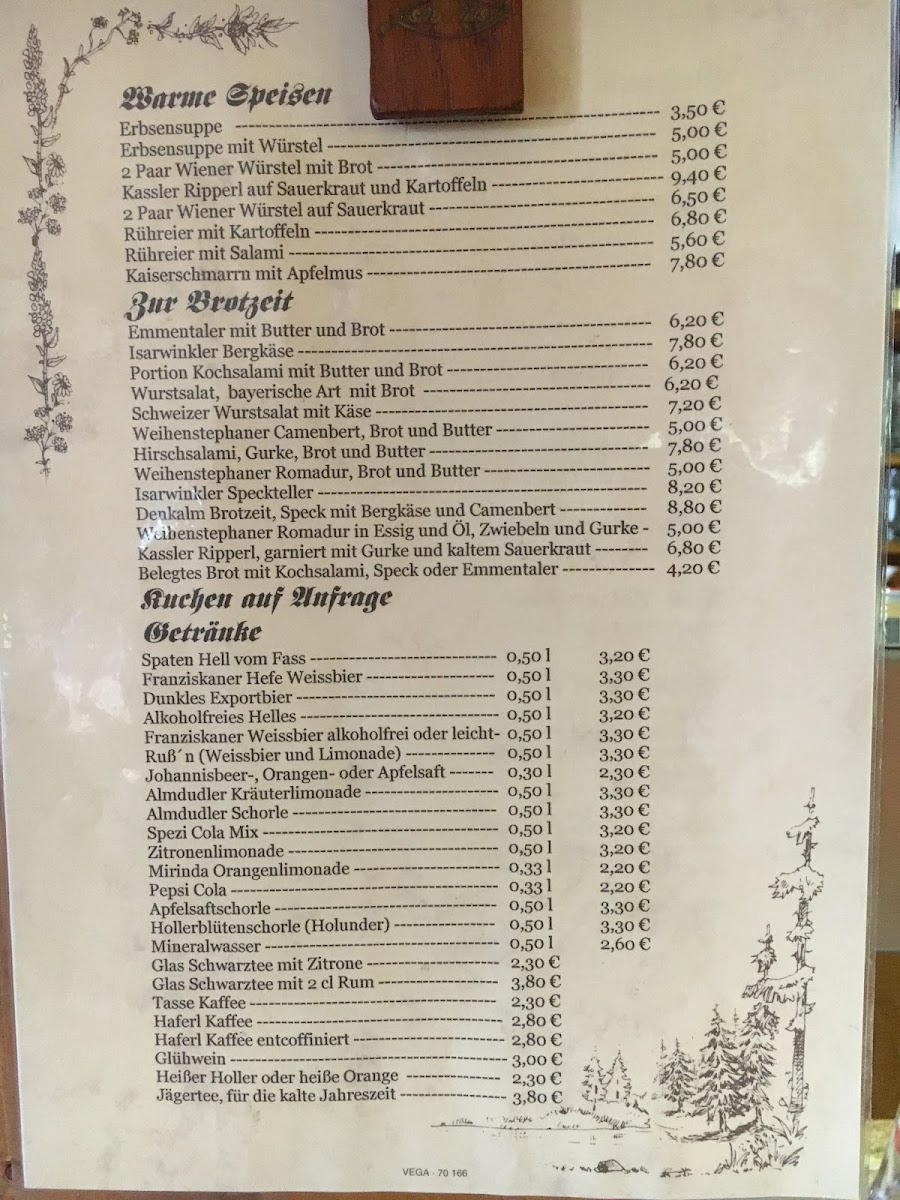 Warme Speisen
Erbsensuppe ---------- 3,50 €
Erbsensuppe mit Würstel ---------- 5,00 €
2 Paar Wiener Würstel mit Brot ---------- 5,00 €
Kassler Ripperl auf Sauerkraut und Kartoffeln ---------- 9,40 €
2 Paar Wiener Würstel auf Sauerkraut ---------- 6,50 €
Rühreier mit Kartoffeln ---------- 6,80 €
Rühreier mit Salami ---------- 5,60 €
Kaiserschmarrn mit Apfelmus ---------- 7,80 €
Zur Brotzeit
Emmentaler mit Butter und Brot ---------- 6,20 €
Isarwinkler Bergkäse ---------- 7,80 €
Portion Kochsalami mit Butter und Brot ---------- 6,20 €
Wurstsalat, bayerische Art mit Brot ---------- 6,20 €
Schweizer Wurstsalat mit Käse ---------- 7,20 €
Weihenstephaner Camenbert, Brot und Butter ---------- 5,00 €
Hirschsalami, Gurke, Brot und Butter ---------- 7,80 €
Weihenstephaner Romadur, Brot und Butter ---------- 5,00 €
Isarwinkler Speckteller ---------- 8,20 €
Denkalm Brotzeit, Speck mit Bergkäse und Camenbert ---------- 8,80 €
Weihenstephaner Romadur in Essig und Öl, Zwiebeln und Gurke - 5,00 €
Kassler Ripperl, garniert mit Gurke und kaltem Sauerkraut -------- 6,80 €
Belegtes Brot mit Kochsalami, Speck oder Emmentaler ---------- 4,20 €
Kuchen auf Anfrage
Getränke
Spaten Hell vom Fass ---------- 0,50 l 3,20 €
Franziskaner Hefe Weissbier ---------- 0,50 l 3,30 €
Dunkles Exportbier ---------- 0,50 l 3,30 €
Alkoholfreies Helles ---------- 0,50 l 3,20 €
Franziskaner Weissbier alkoholfrei oder leicht- 0,50 l 3,30 €
Ruß´n (Weissbier und Limonade) ---------- 0,50 l 3,30 €
Johannisbeer-, Orangen- oder Apfelsaft ------- 0,30 l 2,30 €
Almdudler Kräuterlimonade ---------- 0,50 l 3,30 €
Almdudler Schorle ---------- 0,50 l 3,30 €
Spezi Cola Mix ---------- 0,50 l 3,20 €
Zitronenlimonade ---------- 0,50 l 3,20 €
Mirinda Orangenlimonade ---------- 0,33 l 2,20 €
Pepsi Cola ---------- 0,33 l 2,20 €
Apfelsaftschorle ---------- 0,50 l 3,30 €
Hollerblütenschorle (Holunder) ---------- 0,50 l 3,30 €
Mineralwasser ---------- 0,50 l 2,60 €
Glas Schwarztee mit Zitrone ---------- 2,30 €
Glas Schwarztee mit 2 cl Rum ---------- 3,80 €
Tasse Kaffee ---------- 2,30 €
Haferl Kaffee ---------- 2,80 €
Haferl Kaffee entcoffiniert ---------- 2,80 €
Glühwein ---------- 3,00 €
Heißer Holler oder heiße Orange ---------- 2,30 €
Jägertee, für die kalte Jahreszeit ---------- 3,80 €
VEGA - 70 166